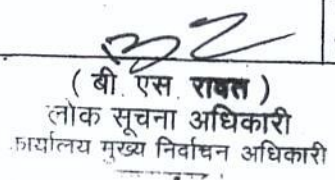 ( बी. एस. रावत )
लोक सूचना अधिकारी
कार्यालय मुख्य निर्वाचन अधिकारी